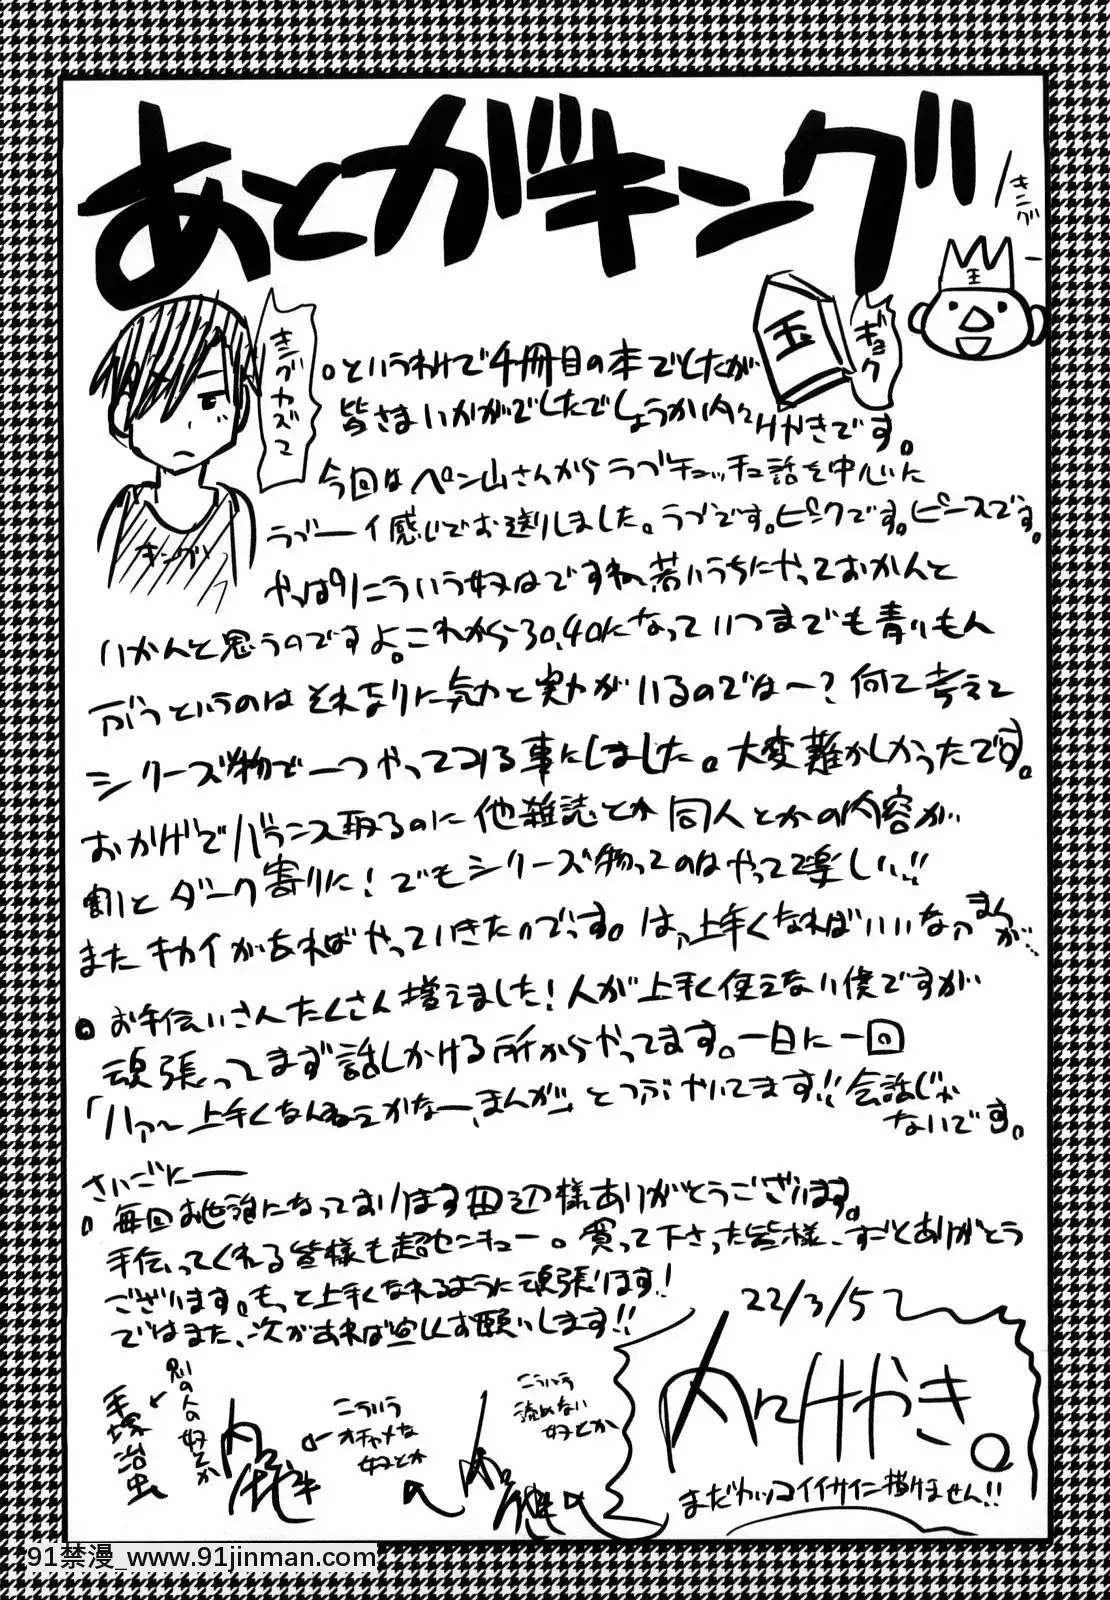 あとがキング
キング
王
ギョク
玉
キングカズマ
キング
。というわけで4冊目の本でしたが
皆さまいかがでしたでしょうか内々けやきです。
今回はペン山さんからラブチュッチュ話を中心に
ラブーイ感じでお送りしました。ラブです。ピンクです。ピースです。
やっぱりこういう奴はですね、若いうちにやっておかんと
いかんと思うのですよ。これから30,40になっていつまでも青いもん
ぶつというのはそれなりに気力と実力がいるのではー?何て考えて
シリーズ物で一つやってみる事にしました。大変難かしかったです。
おかげでバランス取るのに他雑誌とか同人とかの内容が
割とダーク寄りに!でもシリーズ物ってのはやってて楽しい!!
またキカイがあればやっていきたいのです。はァ上手くなればいいなァまんが…
●お手伝いさんたくさん増えました!人が上手く使えない僕ですが
頑張ってまず話しかける所からやってます。一日に一回
「ハァ〜上手くなんねえかなー、まんが」とつぶやいてます!!会話じゃ
ないです。
さいごにー
。毎回お世話になっております田辺様ありがとうございます。
手伝ってくれる皆様も超センキュー。買って下さった皆様、ずごとありがとう
ございます。もっと上手くなれるように頑張ります!
ではまた、次があれば宜しくお願いします!!
22/3/5
内々けやき。
まだカッコイイサイン描けません!!
こういう
読めない
奴とか
こういう
オチャメな
奴とか
別の人の奴とか
手塚治虫
91禁漫_www.91jinman.com